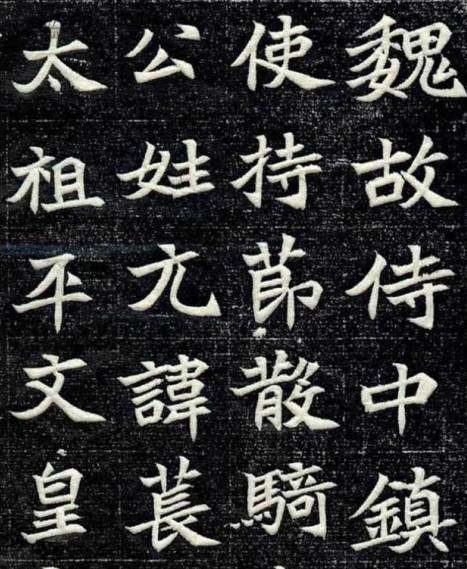 魏故侍中鎮
使持莭散騎
公姓元諱萇
太祖平文皇